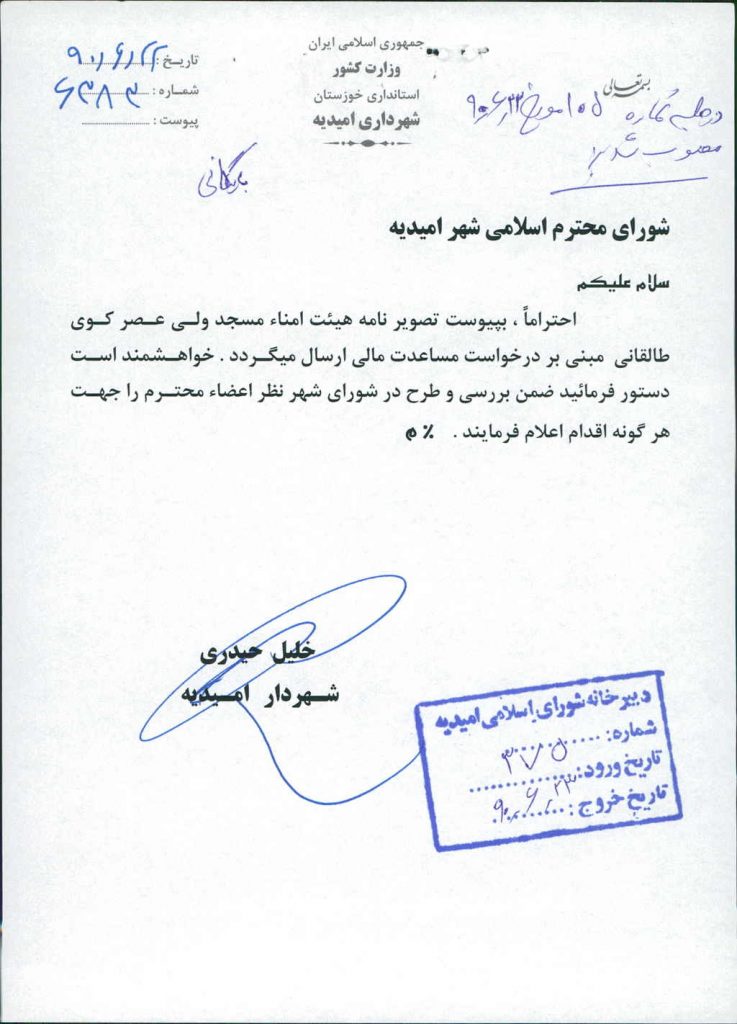 بسمه تعالی
جمهوری اسلامی ایران
وزارت کشور
استانداری خوزستان
شهرداری امیدیه
تاریخ: ۹۰/۶/۲۲
شماره: ۶۳۸۳
پیوست:
در جلسه شماره ۱۰۵ مورخ ۹۰/۶/۲۳
مصوب شد
بایگانی
شورای محترم اسلامی شهر امیدیه
سلام علیکم
احتراماً ، بپیوست تصویر نامه هیئت امناء مسجد ولی عصر کوی
طالقانی مبنی بر درخواست مساعدت مالی ارسال میگردد . خواهشمند است
دستور فرمائید ضمن بررسی و طرح در شورای شهر نظر اعضاء محترم را جهت
هر گونه اقدام اعلام فرمایند . ٪ م
خلیل حیدری
شهردار امیدیه
دبیرخانه شورای اسلامی امیدیه
شماره: ۳۷۵
تاریخ ورود:
تاریخ خروج: ۹۰/۶/۲۳